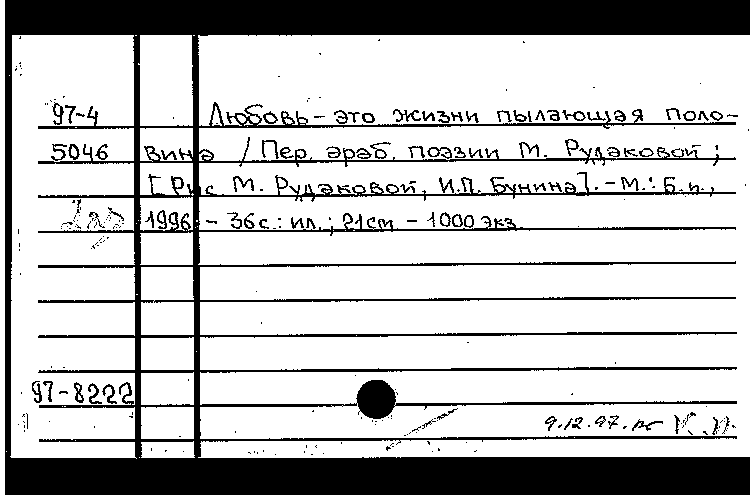 97-4 Любовь – это жизни пылающая поло-
5046 вина / Пер. араб. поэзии М. Рудаковой ;
[Рис М. Рудаковой, И.П. Бунина]. – М. : Б.и.,
1996 – 36 с. : ил. ; 21 cm – 1000 экз.
97-8222
9.12.97. К.П.